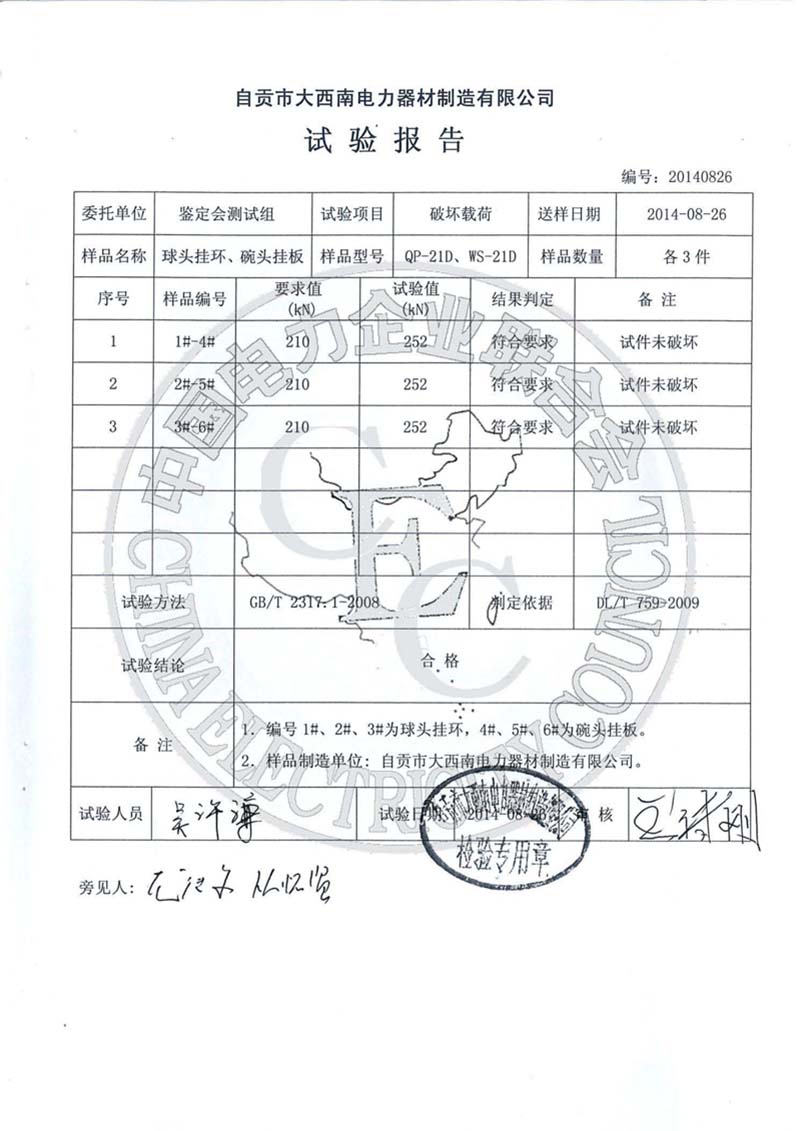 自贡市大西南电力器材制造有限公司
试验报告
编号：20140826
委托单位 鉴定会测试组 试验项目 破坏载荷 送样日期 2014-08-26
样品名称 球头挂环、碗头挂板 样品型号 QP-21D、WS-21D 样品数量 各3件
序号 样品编号 要求值 (kN) 试验值 (kN) 结果判定 备注
1 1#-4# 210 252 符合要求 试件未破坏
2 2#-5# 210 252 符合要求 试件未破坏
3 3#-6# 210 252 符合要求 试件未破坏
试验方法 GB/T 2317.1-2008 判定依据 DL/T 759-2009
试验结论 合格
备注 1. 编号 1#、2#、3#为球头挂环，4#、5#、6#为碗头挂板。
2. 样品制造单位：自贡市大西南电力器材制造有限公司。
试验人员 试验日期 2014-08-26 审核
旁见人：
检验专用章
中国电力企业联合会
CHINA ELECTRICITY COUNCIL
CEC